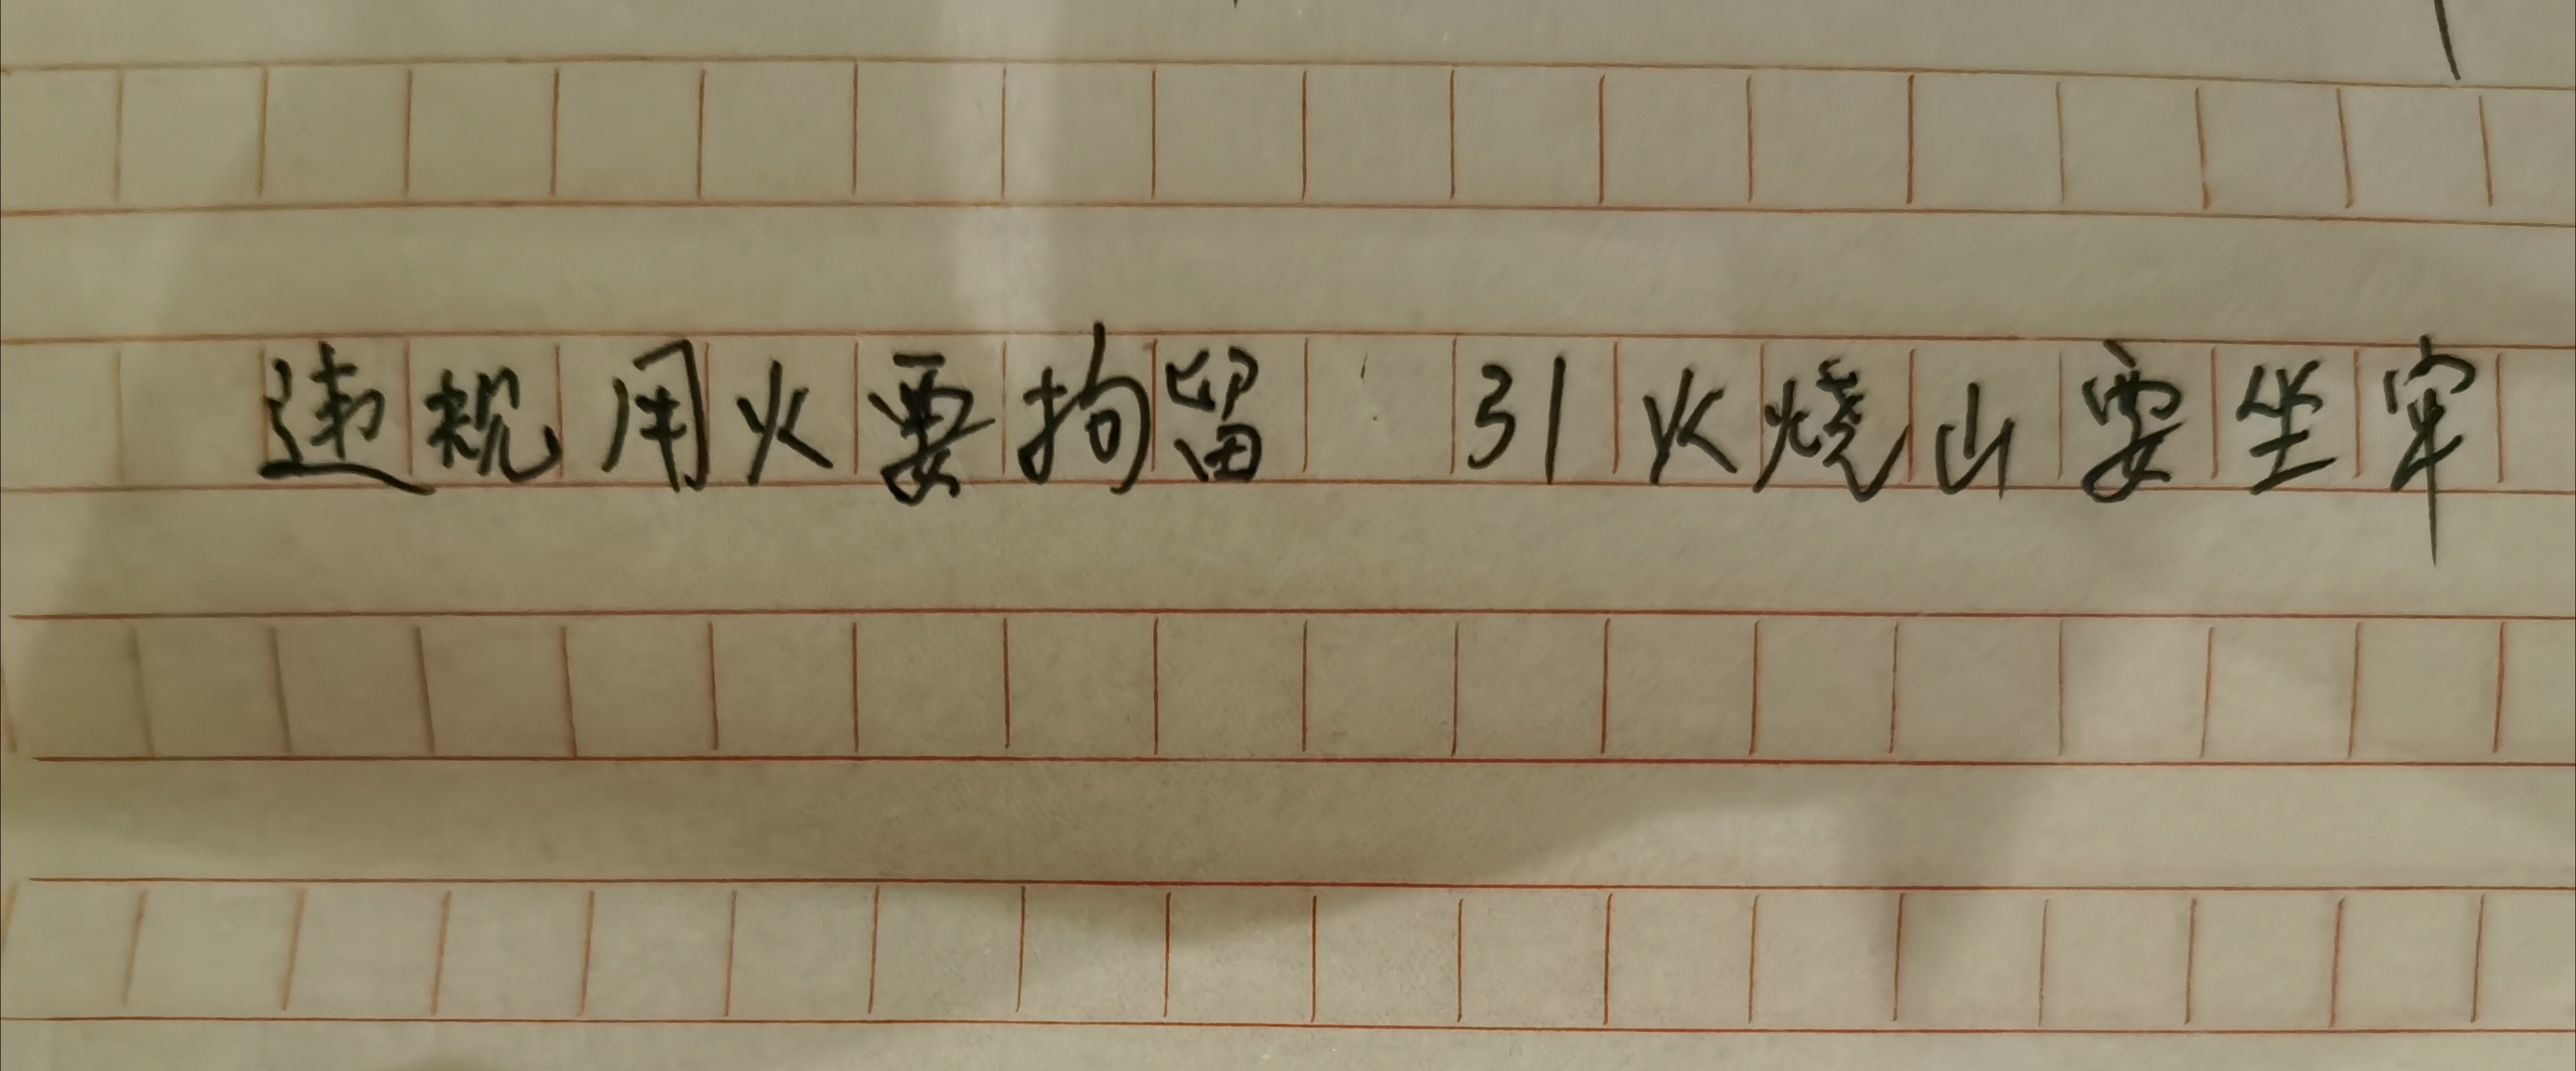 违规用火要拘留 引火烧山要坐牢